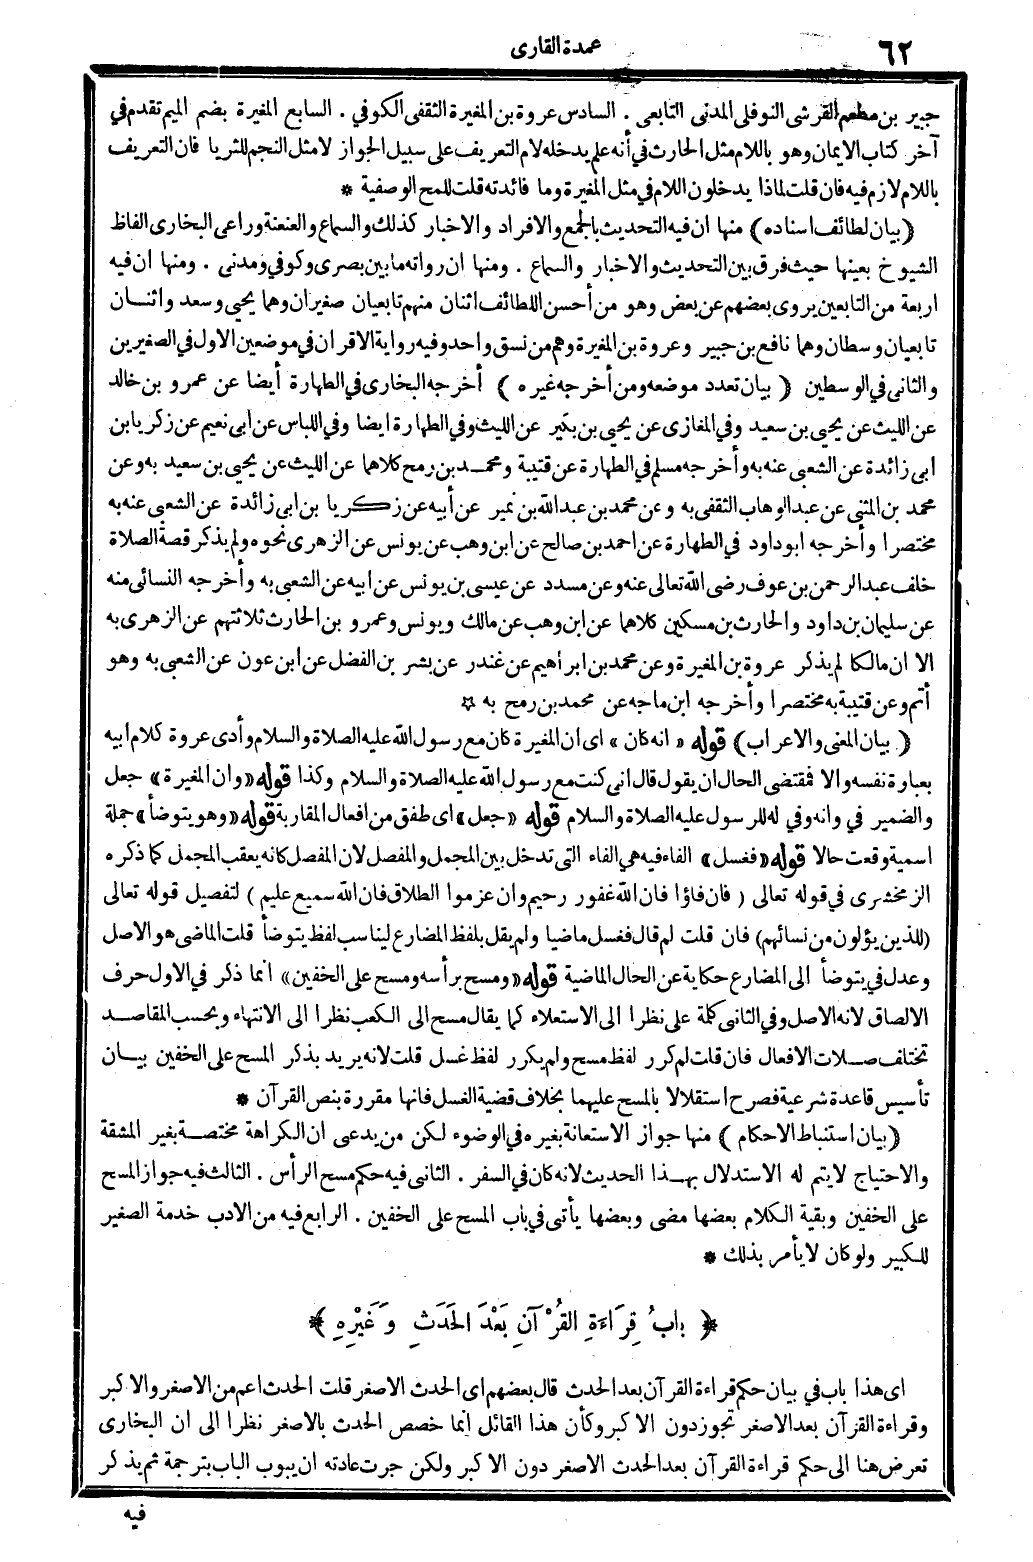 ٦٢
عمدة القارى
جبير بن مطعم القرشى النوفلى المدنى التابعى . السادس عروة بن المغيرة الثقفى الكوفي . السابع المغيرة بضم الميم تقدم في
آخر كتاب الايمان وهو باللام مثل الحارث في أنه علم يدخله لام التعريف على سبيل الجواز لامثل النجم للثريا فان التعريف
باللام لازم فيه فان قلت لماذا يدخلون اللام في مثل المغيرة وما فائدته قلت للمح الوصفية *
(بيان لطائف اسناده) منها ان فيه التحديث بالجمع والافراد والاخبار كذلك والسماع والعنعنة وراعى البخارى الفاظ
الشيوخ بعينها حيث فرق بين التحديث والاخبار والسماع . ومنها ان رواته ما بين بصرى وكوفي ومدنى . ومنها ان فيه
اربعة من التابعين يروى بعضهم عن بعض وهو من أحسن اللطائف اثنان منهم تابعيان صغيران وهما يحيى وسعد واثنــان
تابعيان وسطان وهما نافع بن جبير وعروة بن المغيرة وهم من نسق واحد وفيه رواية الاقران في موضعين الاول في الصغيرين
والثانى في الوسطين ( بيان تعدد موضعه ومن أخرجه غيره ) أخرجه البخارى في الطهارة أيضا عن عمرو بن خالد
عن الليث عن يحيى بن سعيد وفي المغازى عن يحيى بن بكير عن الليث وفي الطهارة ايضا وفي اللباس عن أبى نعيم عن زكريا بن
ابى زائدة عن الشعبى عنه به وأخرجه مسلم في الطهارة عن قتيبة ومحمــد بن رمح كلاهما عن الليث عن يحيى بن سعيد به وعن
محمد بن المثنى عن عبد الوهاب الثقفى به وعن محمد بن عبد الله بن نمير عن أبيه عن زكــريا بن ابى زائدة عن الشعبى عنه به
مختصرا وأخرجه ابو داود في الطهارة عن احمد بن صالح عن ابن وهب عن يونس عن الزهرى نحوه ولم يذكر قصة الصلاة
خلف عبد الرحمن بن عوف رضى الله تعالى عنه وعن مسدد عن عيسى بن يونس عن ابيه عن الشعبى به وأخرجه النسائى منه
عن سليمان بن داود والحارث بن مسكين كلاهما عن ابن وهب عن مالك ويونس وعمرو بن الحارث ثلاثتهم عن الزهرى به
الا ان مالكا لم يذكر عروة بن المغيرة وعن محمد بن ابراهيم عن غندر عن بشر بن الفضل عن ابن عون عن الشعبى به وهو
أتم وعن قتيبة به مختصرا وأخرجه ابن ماجه عن محمد بن رمح به ☆
( بيان المعنى والاعراب) قوله « انه كان » اى ان المغيرة كان مع رسول الله عليه الصلاة والسلام وأدى عروة كلام ابيه
بعبارة نفسه والا فمقتضى الحال ان يقول قال انى كنت مع رسول الله عليه الصلاة والسلام وكذا قوله «وان المغيرة» جعل
والضمير في وانه وفي له للرسول عليه الصلاة والسلام قوله «جعل» اى طفق من افعال المقاربة قوله «وهو يتوضأ» جملة
اسمية وقعت حالا قوله «فغسل» الفاء فيه هي الفاء التى تدخل بين المجمل والمفصل لان المفصل كانه يعقب المجمل كما ذكره
الزمخشرى في قوله تعالى ( فان فاؤا فان الله غفور رحيم وان عزموا الطلاق فان الله سميع عليم ) لتفصيل قوله تعالى
(للذين يؤلون من نسائهم) فان قلت لم قال فغسل ماضيا ولم يقل بلفظ المضارع ليناسب لفظ يتوضأ قلت الماضى هو الاصل
وعدل في يتوضأ الى المضارع حكاية عن الحال الماضية قوله «ومسح برأسه ومسح على الخفين» انما ذكر في الاول حرف
الالصاق لانه الاصل وفي الثانى كلمة على نظرا الى الاستعلاء كما يقال مسح الى الكعب نظرا الى الانتهاء وبحسب المقاصــد
تختلف صــلات الافعال فان قلت لم كرر لفظ مسح ولم يكرر لفظ غسل قلت لانه يريد بذكر المسح على الخفين بيــان
تأسيس قاعدة شرعية فصرح استقلالا بالمسح عليهما بخلاف قضية الغسل فانها مقررة بنص القرآن *
(بيان استنباط الاحكام ) منها جواز الاستعانة بغيره في الوضوء لكن من يدعى ان الكراهة مختصــة بغير المشقة
والاحتياج لا يتم له الاستدلال بهــذا الحديث لانه كان في السفر . الثانى فيه حكم مسح الرأس . الثالث فيه جواز المسح
على الخفين وبقية الكلام بعضها مضى وبعضها يأتى في باب المسح على الخفين . الرابع فيه من الادب خدمة الصغير
للكبير ولو كان لا يأمر بذلك *
﴿ بابُ قِرَاءَةِ القُرْآنِ بَعْدَ الحَدَثِ وَغَيْرِهِ ﴾
اى هذا باب في بيان حكم قراءة القرآن بعد الحدث قال بعضهم اى الحدث الاصغر قلت الحدث اعم من الاصغر والاكبر
وقراءة القرآن بعد الاصغر تجوز دون الاكبر وكأن هذا القائل انما خصص الحدث بالاصغر نظرا الى ان البخارى
تعرض هنا الى حكم قراءة القرآن بعد الحدث الاصغر دون الاكبر ولكن جرت عادته ان يبوب الباب بترجمة ثم يذكر
فيه